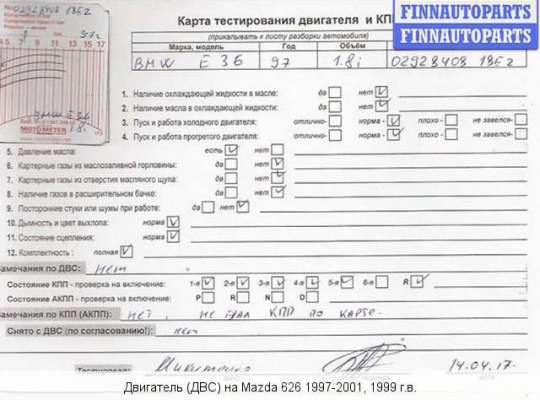 02928408 18ё2
97г
5 6 7 8 9 10 11 12 13 14 15 16 17
BMW E36
1.8i
MOTOMETER
FINNAUTOPARTS
FINNAUTOPARTS
Карта тестирования двигателя и КПП
(прикалывать к листу разборки автомобиля)
Марка, модель Год Объём
BMW E 36 97 1.8i 02928408 18ё2
1. Наличие охлаждающей жидкости в масле: да нет
2. Наличие масла в охлаждающей жидкости: да нет
3. Пуск и работа холодного двигателя: отлично- норма - плохо - не завелся-
4. Пуск и работа прогретого двигателя: отлично- норма - плохо - не завелся-
5. Давление масла: есть нет
6. Картерные газы из маслозаливной горловины: да нет
7. Картерные газы из отверстия масляного щупа: да нет
8. Наличие газов в расширительном бачке: да нет
9. Посторонние стуки или шумы при работе: да нет
10. Дымность и цвет выхлопа: норма
11. Состояние сцепления: норма
12. Комплектность : полная
Замечания по ДВС: нет
Состояние КПП - проверка на включение: 1-я 2-я 3-я 4-я 5-я 6-я R
Состояние АКПП - проверка на включение: P R N D
Замечания по КПП (АКПП): нет, не брал КПП по карте.
Снято с ДВС (по согласованию!): нет
Тестировал: Микитенко 14.04.17.
Двигатель (ДВС) на Mazda 626 1997-2001, 1999 г.в.